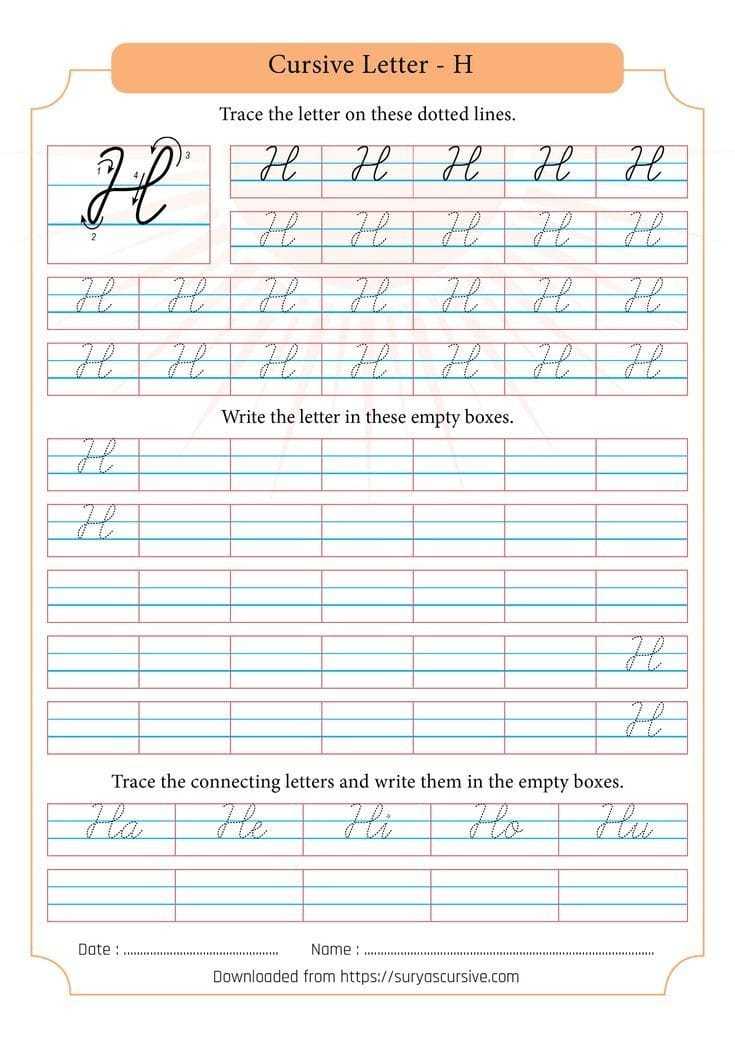 Cursive Letter - H
Trace the letter on these dotted lines.
H H H H H H
1 2 3 4
H H H H H
H H H H H H H
H H H H H H H
Write the letter in these empty boxes.
H
H
H
H
Trace the connecting letters and write them in the empty boxes.
Ha He Hi Ho Hu
Date : Name :
Downloaded from https://suryascursive.com